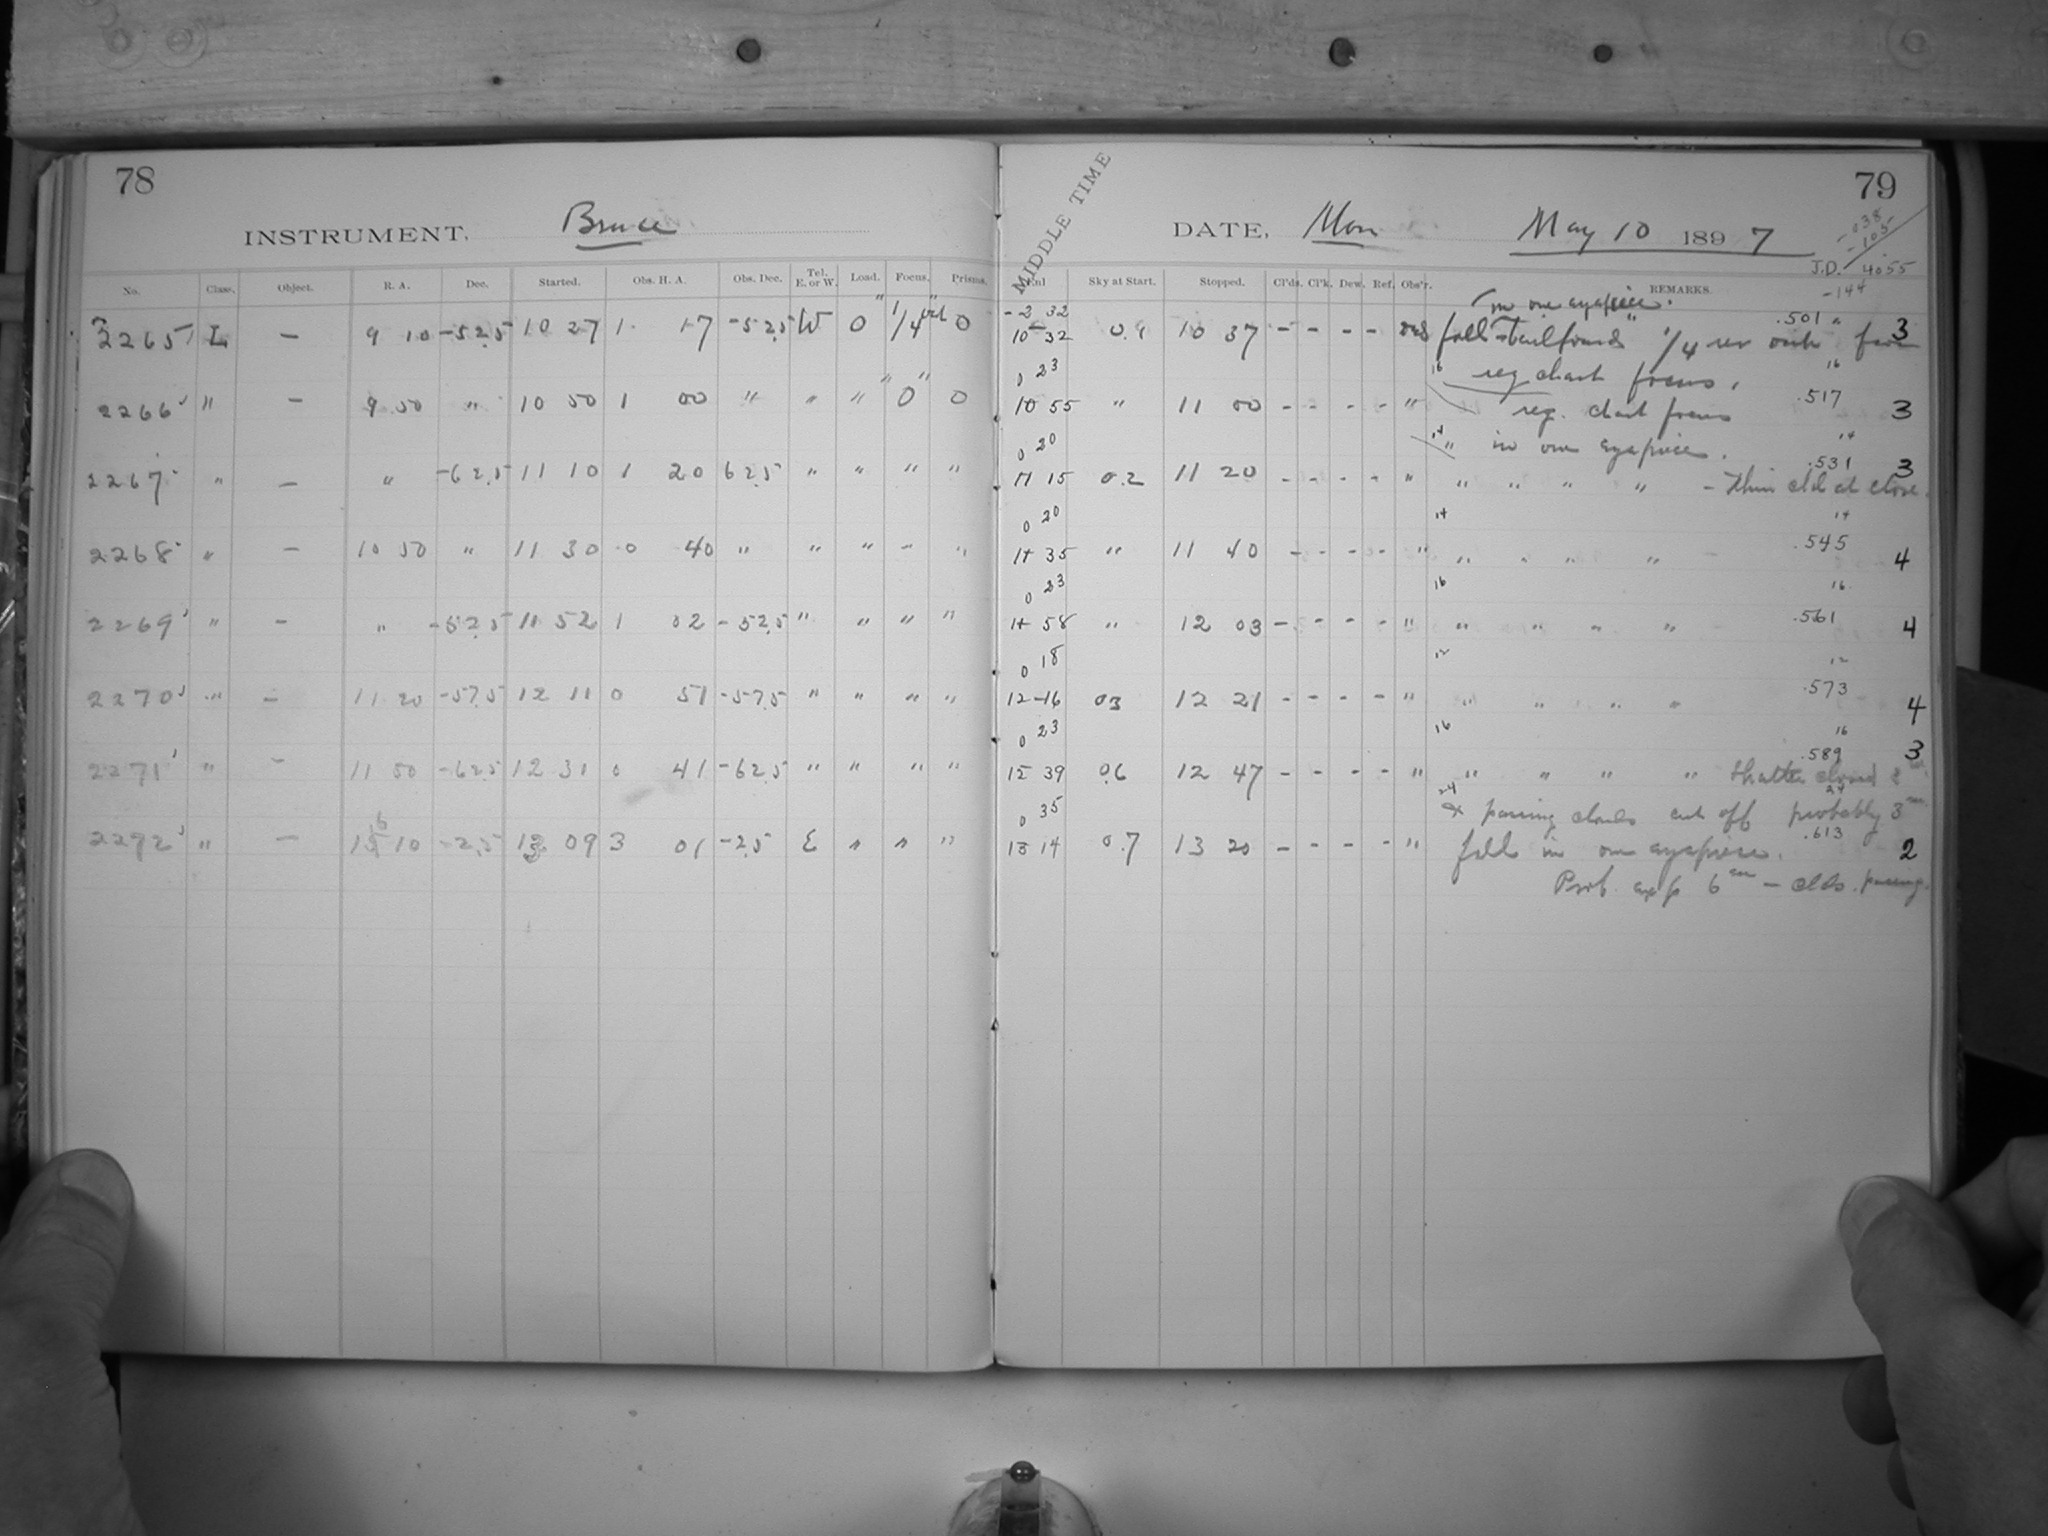 78
79
INSTRUMENT, Bruce
MIDDLE TIME
DATE, Mon May 10 1897
-.038
-.105
J.D. 4055
-144
No. Class. Object. R. A. Dec. Started. Obs. H. A. Obs. Dec. Tel. E. or W. Load. Focus. Prisms.
Sky at Start. Stopped. Cl'ds. Cl'k. Dew. Ref. Obs'r. REMARKS.
in one eyepiece.
-2 32
2265 L — 9 10 -52.5 10 27 1 17 -52.5 W 0 "1/4" 0 10 32 10 37 - - - - 1/4 rev .501 3
0 23 16 reg chart focus. 16
2266 " — 9 50 " 10 50 1 00 " " " "0" 0 10 55 " 11 00 - - - - " reg. chart focus .517 3
0 20 14 " in one eyepiece. 14
2267 " — " -62.5 11 10 1 20 62.5 " " " " 11 15 0.2 11 20 - - - - " " " " " - Thin cld at close. .531 3
0 20 14 14
2268 " — 10 50 " 11 30 0 40 " " " " " 11 35 " 11 40 - - - - " " " " " .545 4
0 23 16 16
2269 " — " -52.5 11 52 1 02 -52.5 " " " " 11 58 " 12 03 - - - - " " " " " .561 4
0 18 12 12
2270 " — 11 20 -57.5 12 11 0 51 -57.5 " " " " 12 16 03 12 21 - - - - " " " " " .573 4
0 23 16 16
2271 " — 11 50 -62.5 12 31 0 41 -62.5 " " " " 12 39 0.6 12 47 - - - - " " " " " Shutter closed 2 .589 3
0 35 24 & passing clouds cut off probably 3m. 24
2272 " — 16 10 -2.5 13 09 3 01 -2.5 E " " " 13 14 0.7 13 20 - - - - " in one eyepiece. .613 2
Prob. exp 6m — clds. passing.